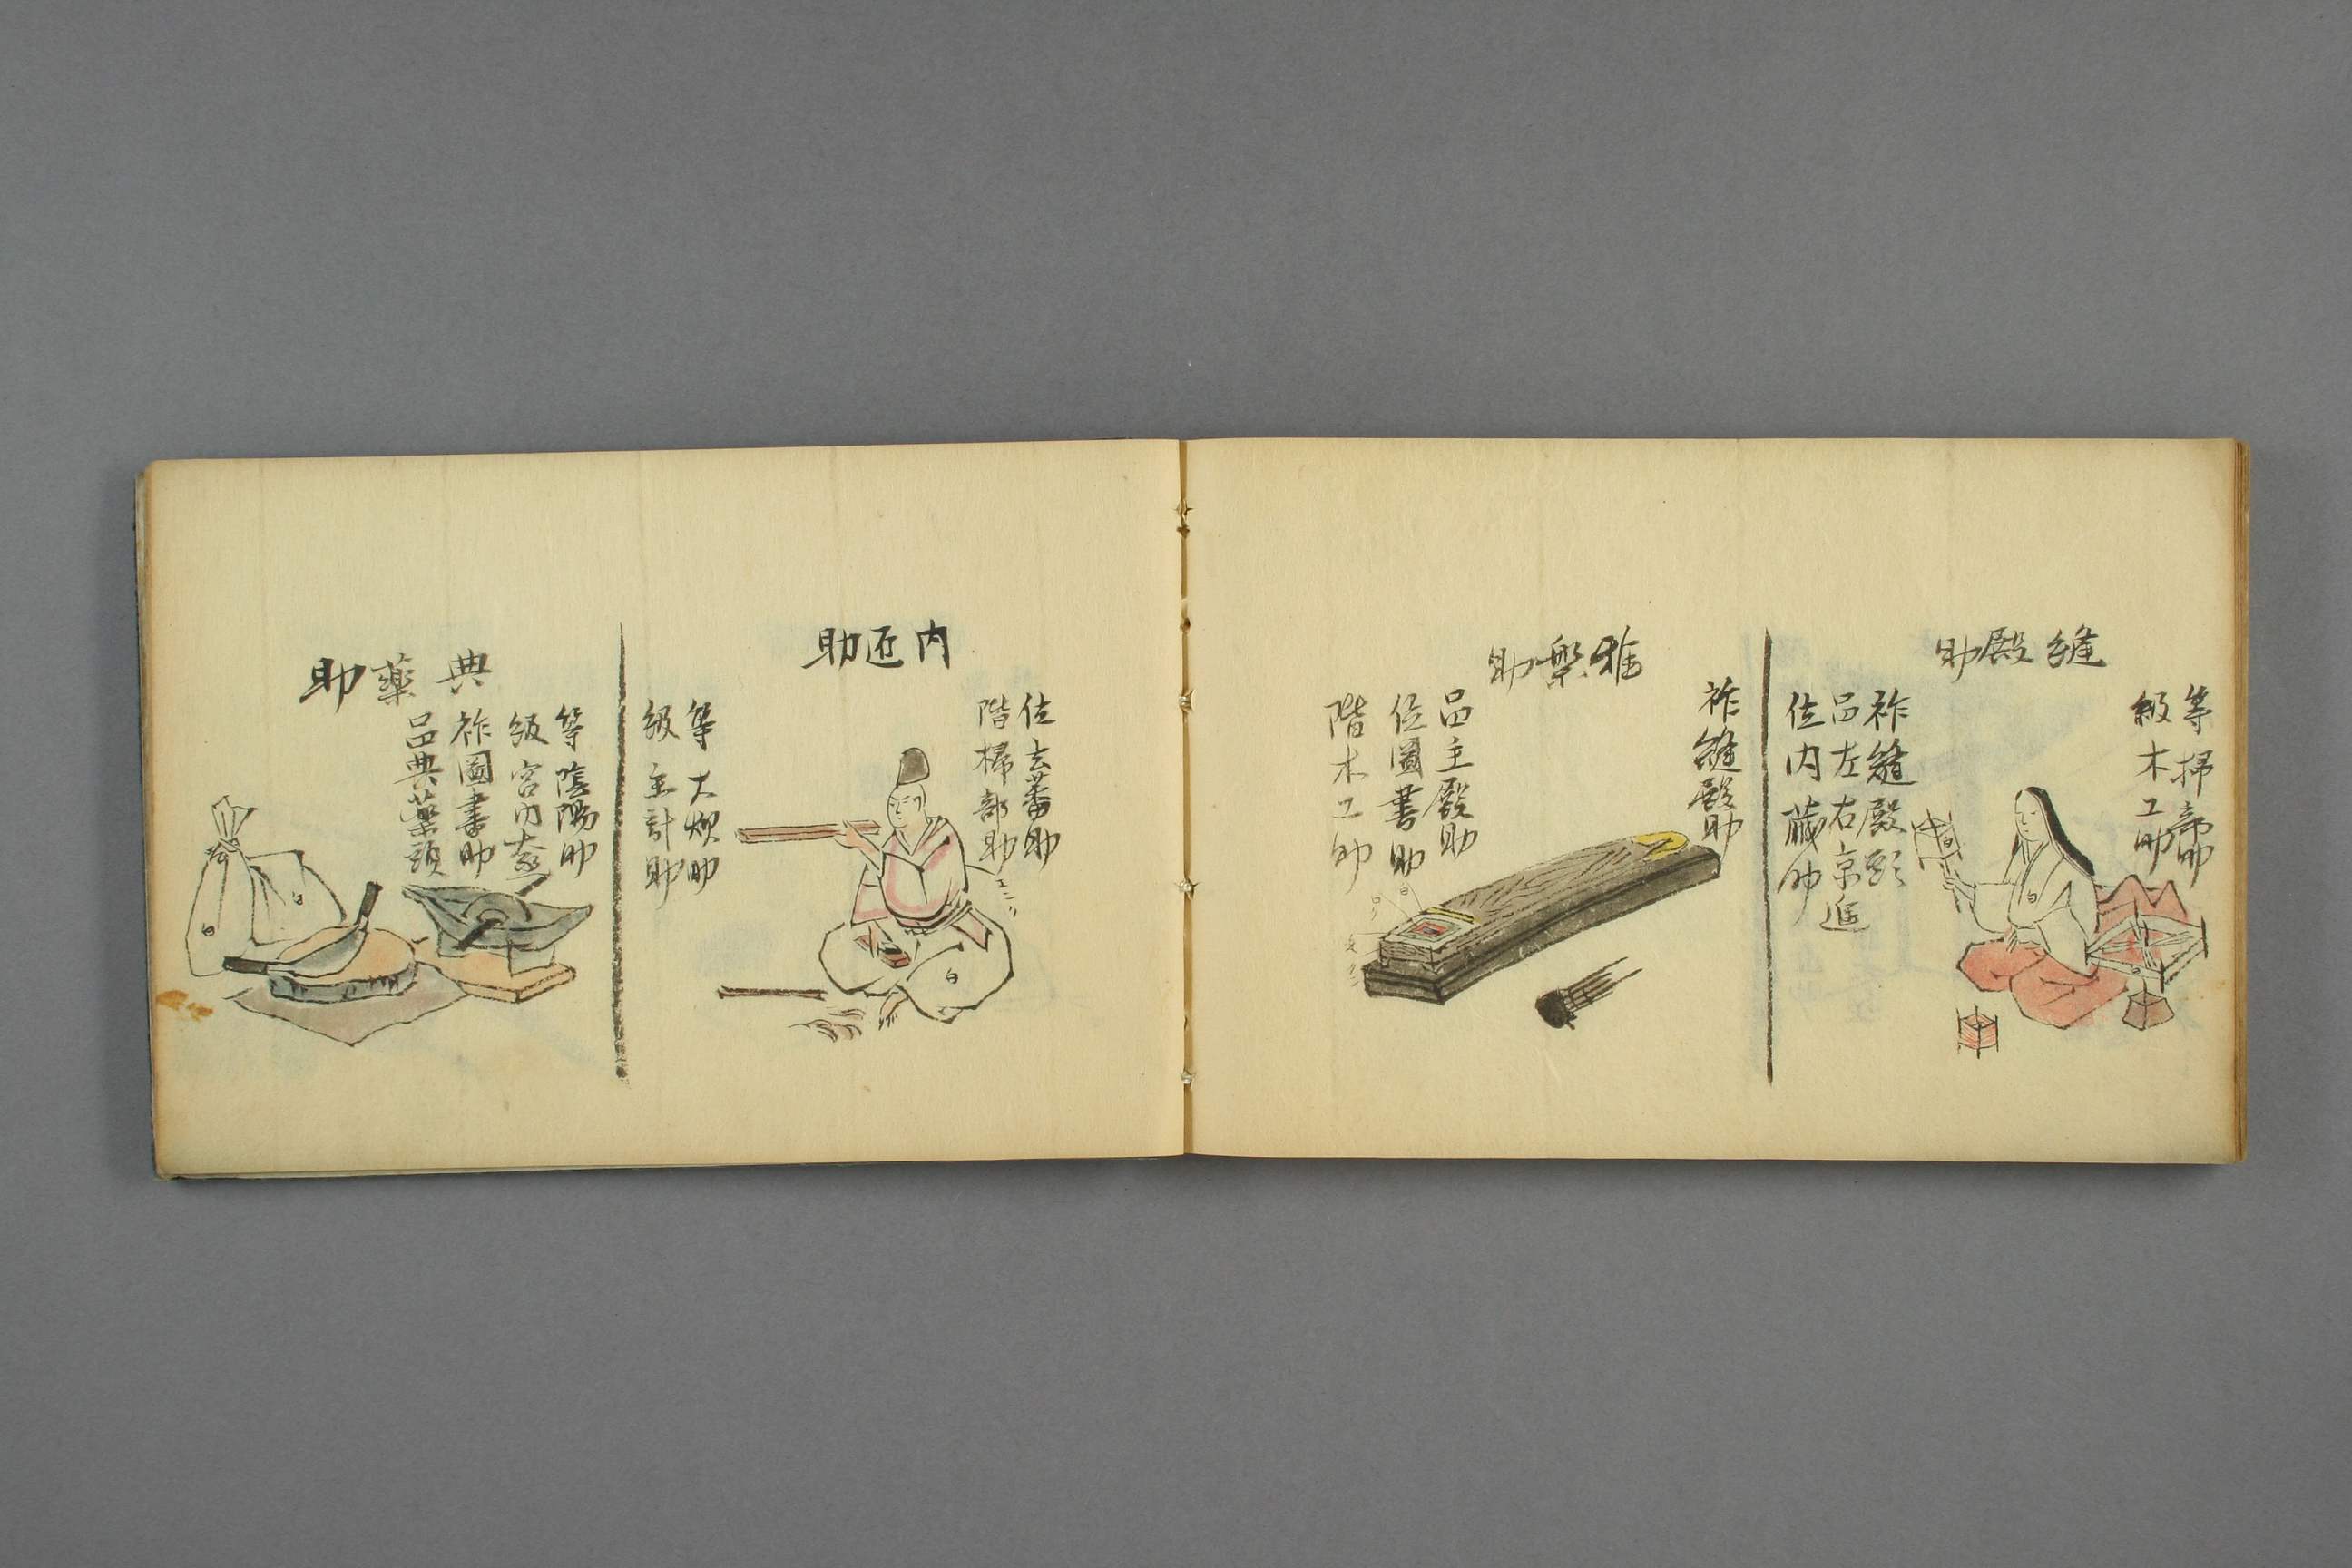 縫殿助
等掃部助
級木工助
祚縫殿頭
品左右京進
位内蔵助
雅樂助
祚縫殿助
品主殿助
位圖書助
階木工助
内匠助
位玄蕃助
階掃部助
等大炊助
級主計助
典藥助
等陰陽助
級宮内
祚圖書助
品典藥頭